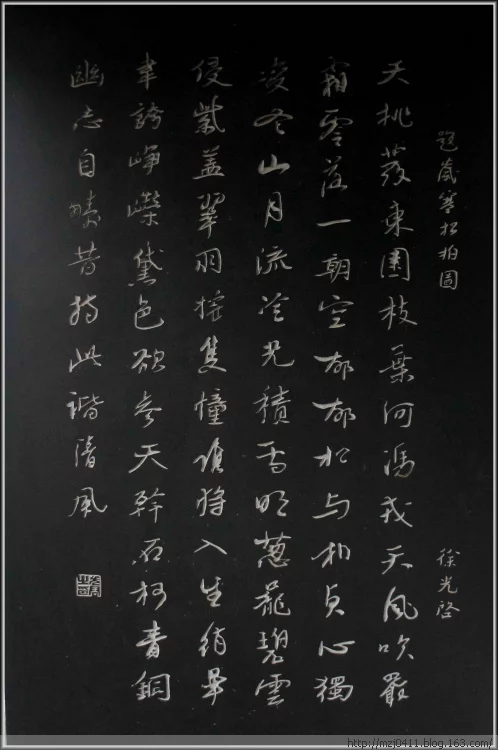 題歲寒松柏圖
徐光啓
夭桃發東園枝葉何馮戎天風吹嚴
霜零落一朝空郁郁松与柏貞心獨
凌冬山月流冷光積雪明蔥蘢碧雲
侵紫蓋翠羽搖雙幢誰將入生綃畢
韋誇崢嶸黛色欲參天幹石柯青銅
幽志自疇昔持此諧清風
http://mzj0411.blog.163.com/